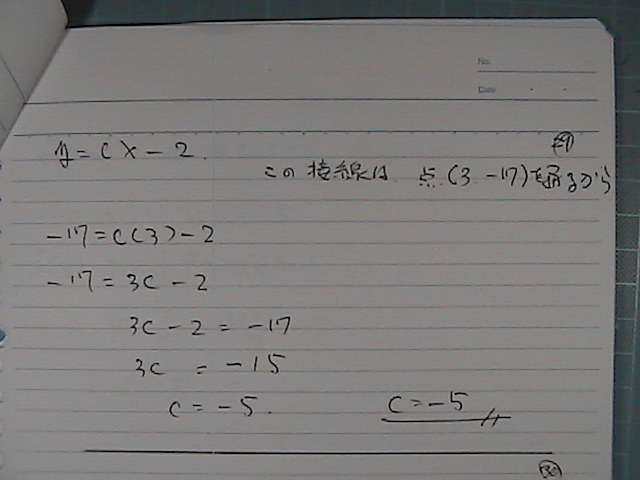 No.
Date
29
y = cx - 2.
この接線は 点(3 -17)を通るから
-17 = c(3) - 2
-17 = 3c - 2
3c - 2 = -17
3c = -15
c = -5. c = -5
30